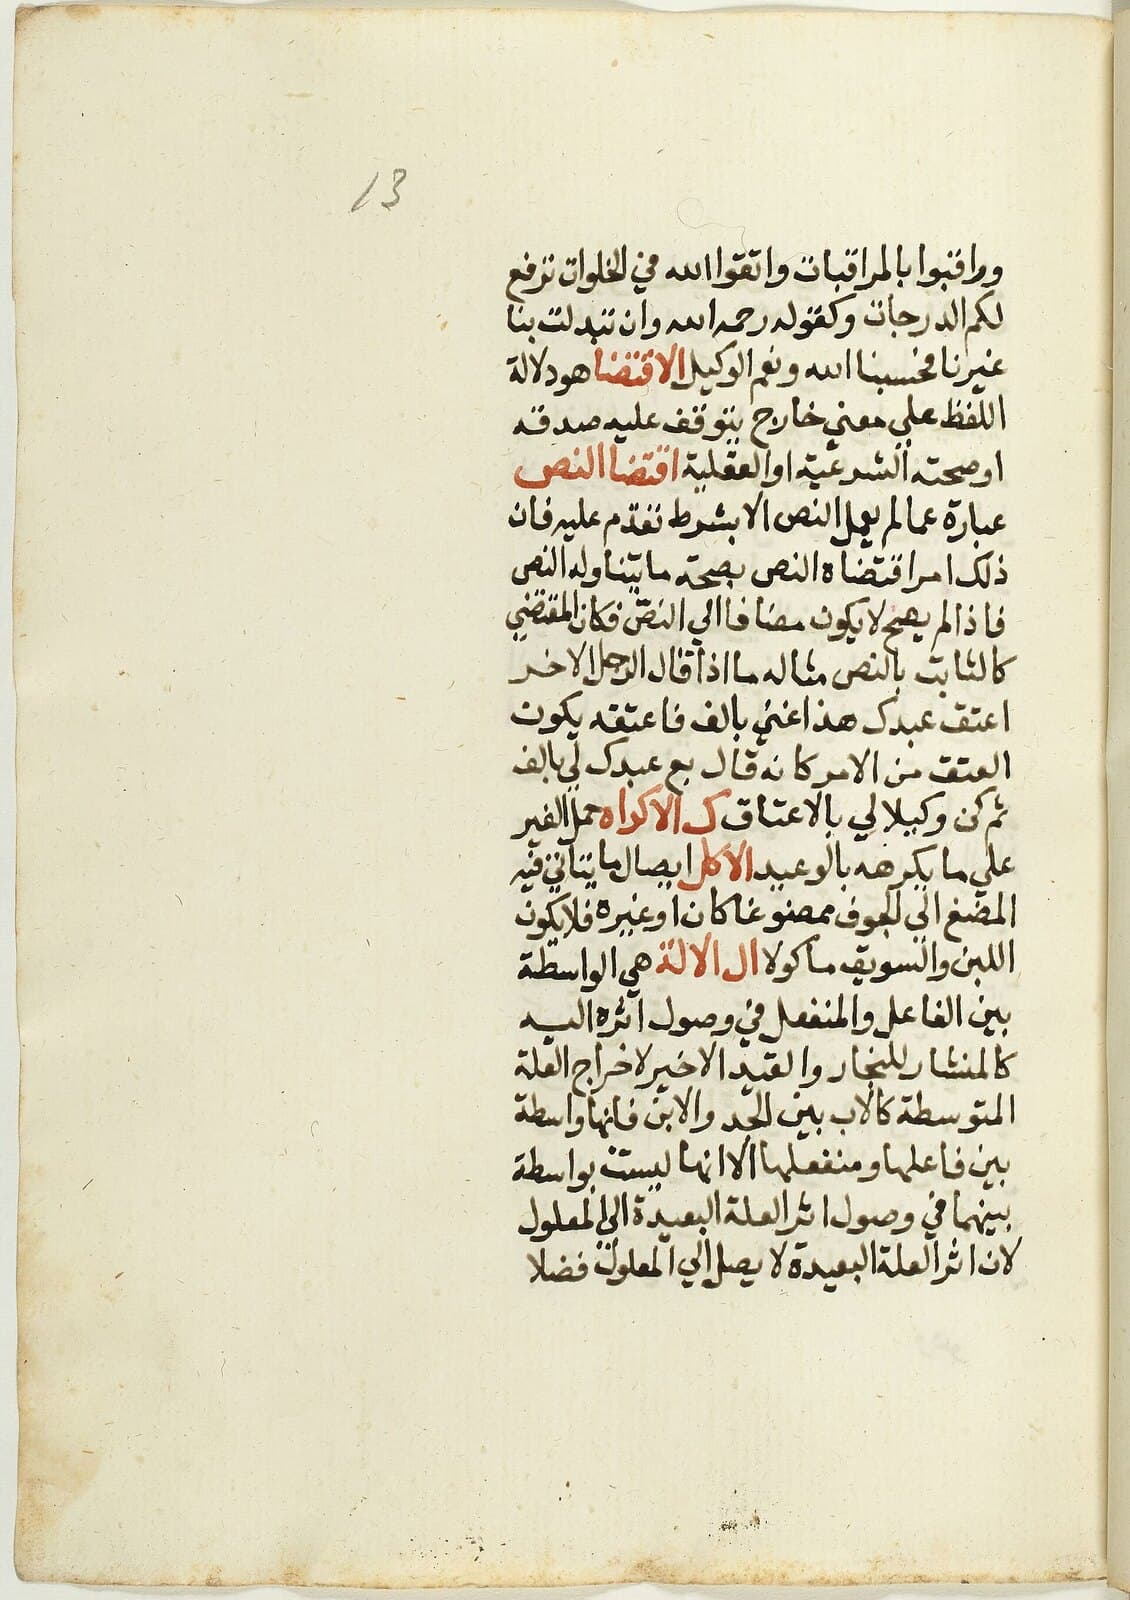 13
وراقبوا بالمراقبات واتقوا الله في الخلوات ترفع
لكم الدرجات وكقوله رحمه الله وان تبدلت بنا
غيرنا فحسبنا الله ونعم الوكيل الاقتضا هو دلالة
اللفظ علي معني خارج يتوقف عليه صدقه
او صحته الشرعية او العقلية اقتضا النص
عبارة عما لم يعمل النص الا بشرط تقدم عليه فان
ذلك امر اقتضاه النص بصحة ما يتناوله النص
فاذا لم يصح لا يكون مضافا الي النص فكان المقتضي
كالثابت بالنص مثاله ما اذا قال الرجل لاخر
اعتق عبدك هذا عني بالف فاعتقه يكون
العتق من الامر كانه قال بع عبدك لي بالف
ثم كن وكيلا لي بالاعتاق ك الاكراه حمل الغير
علي ما يكرهه بالوعيد الاكل ايصال ما يتاتي فيه
المضغ الي الجوف ممضوغا كان او غيره فلا يكون
اللبن والسويق ماكولا ال الالة هي الواسطة
بين الفاعل والمنفعل في وصول اثره اليه
كالمنشار للنجار والقيد الاخير لاخراج العلة
المتوسطة كالاب بين الجد والابن فانها واسطة
بين فاعلها ومنفعلها الا انها ليست بواسطة
بينهما في وصول اثر العلة البعيدة الي المعلول
لان اثر العلة البعيدة لا يصل الي المعلول فضلا